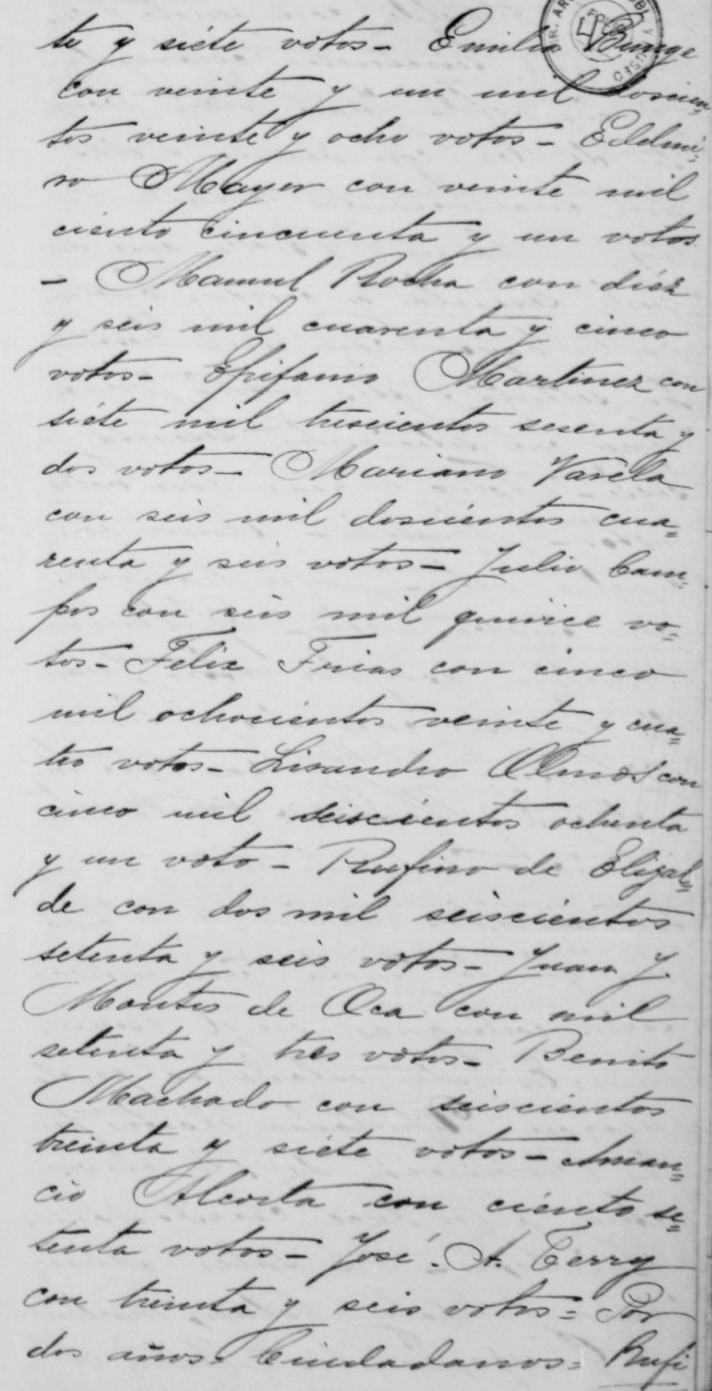 te y siéte votos - Emilio Bunge
con veinte y un mil doscien
tos veinte y ocho votos - Edelmi=
ro Mayer con veinte mil
ciento cincuenta y un votos
- Manuel Rocha con diéz
y seis mil cuarenta y cinco
votos - Epifanio Martinez con
siéte mil trescientos sesenta y
dos votos - Mariano Varela
con seis mil doscientos cua=
renta y seis votos - Julio Cam=
pos con seis mil quince vo=
tos - Felix Frias con cinco
mil ochocientos veinte y cua=
tro votos - Lisandro Olmos con
cinco mil seiscientos ochenta
y un voto - Rufino de Elizal=
de con dos mil seiscientos
setenta y seis votos - Juan J.
Montes de Oca con mil
setenta y tres votos - Benito
Machado con seiscientos
treinta y siéte votos - Aman=
cio Alcorta con ciento se=
tenta votos - José A. Terry
con treinta y seis votos = Por
dos años - Ciudadanos = Rufi